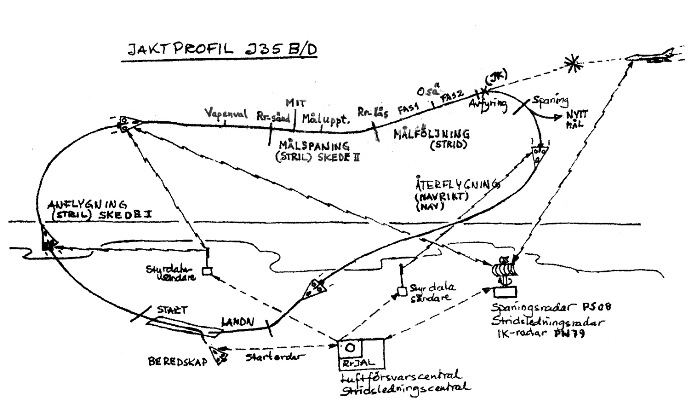 JAKTPROFIL J35 B/D
(IK)
OSÄ
FAS1
FAS2
Avfyring
Spaning
NYTT
MÅL
MIT
Vapenval
Rr-sänd
Måluppt.
Rr-lås
MÅLSPANING
(STRIL) SKEDE II
MÅLFÖLJNING
(STRID)
ÅTERFLYGNING
(NAVRIKT)
(NAV)
ANFLYGNING
(STRIL) SKEDE I
Styrdata-
sändare
Styrdata
sändare
Spaningsradar PS08
Stridsledningsradar
IK-radar PN79
START
LANDN
BEREDSKAP
Startorder
RrJAL
Luftförsvarscentral
Stridsledningscentral